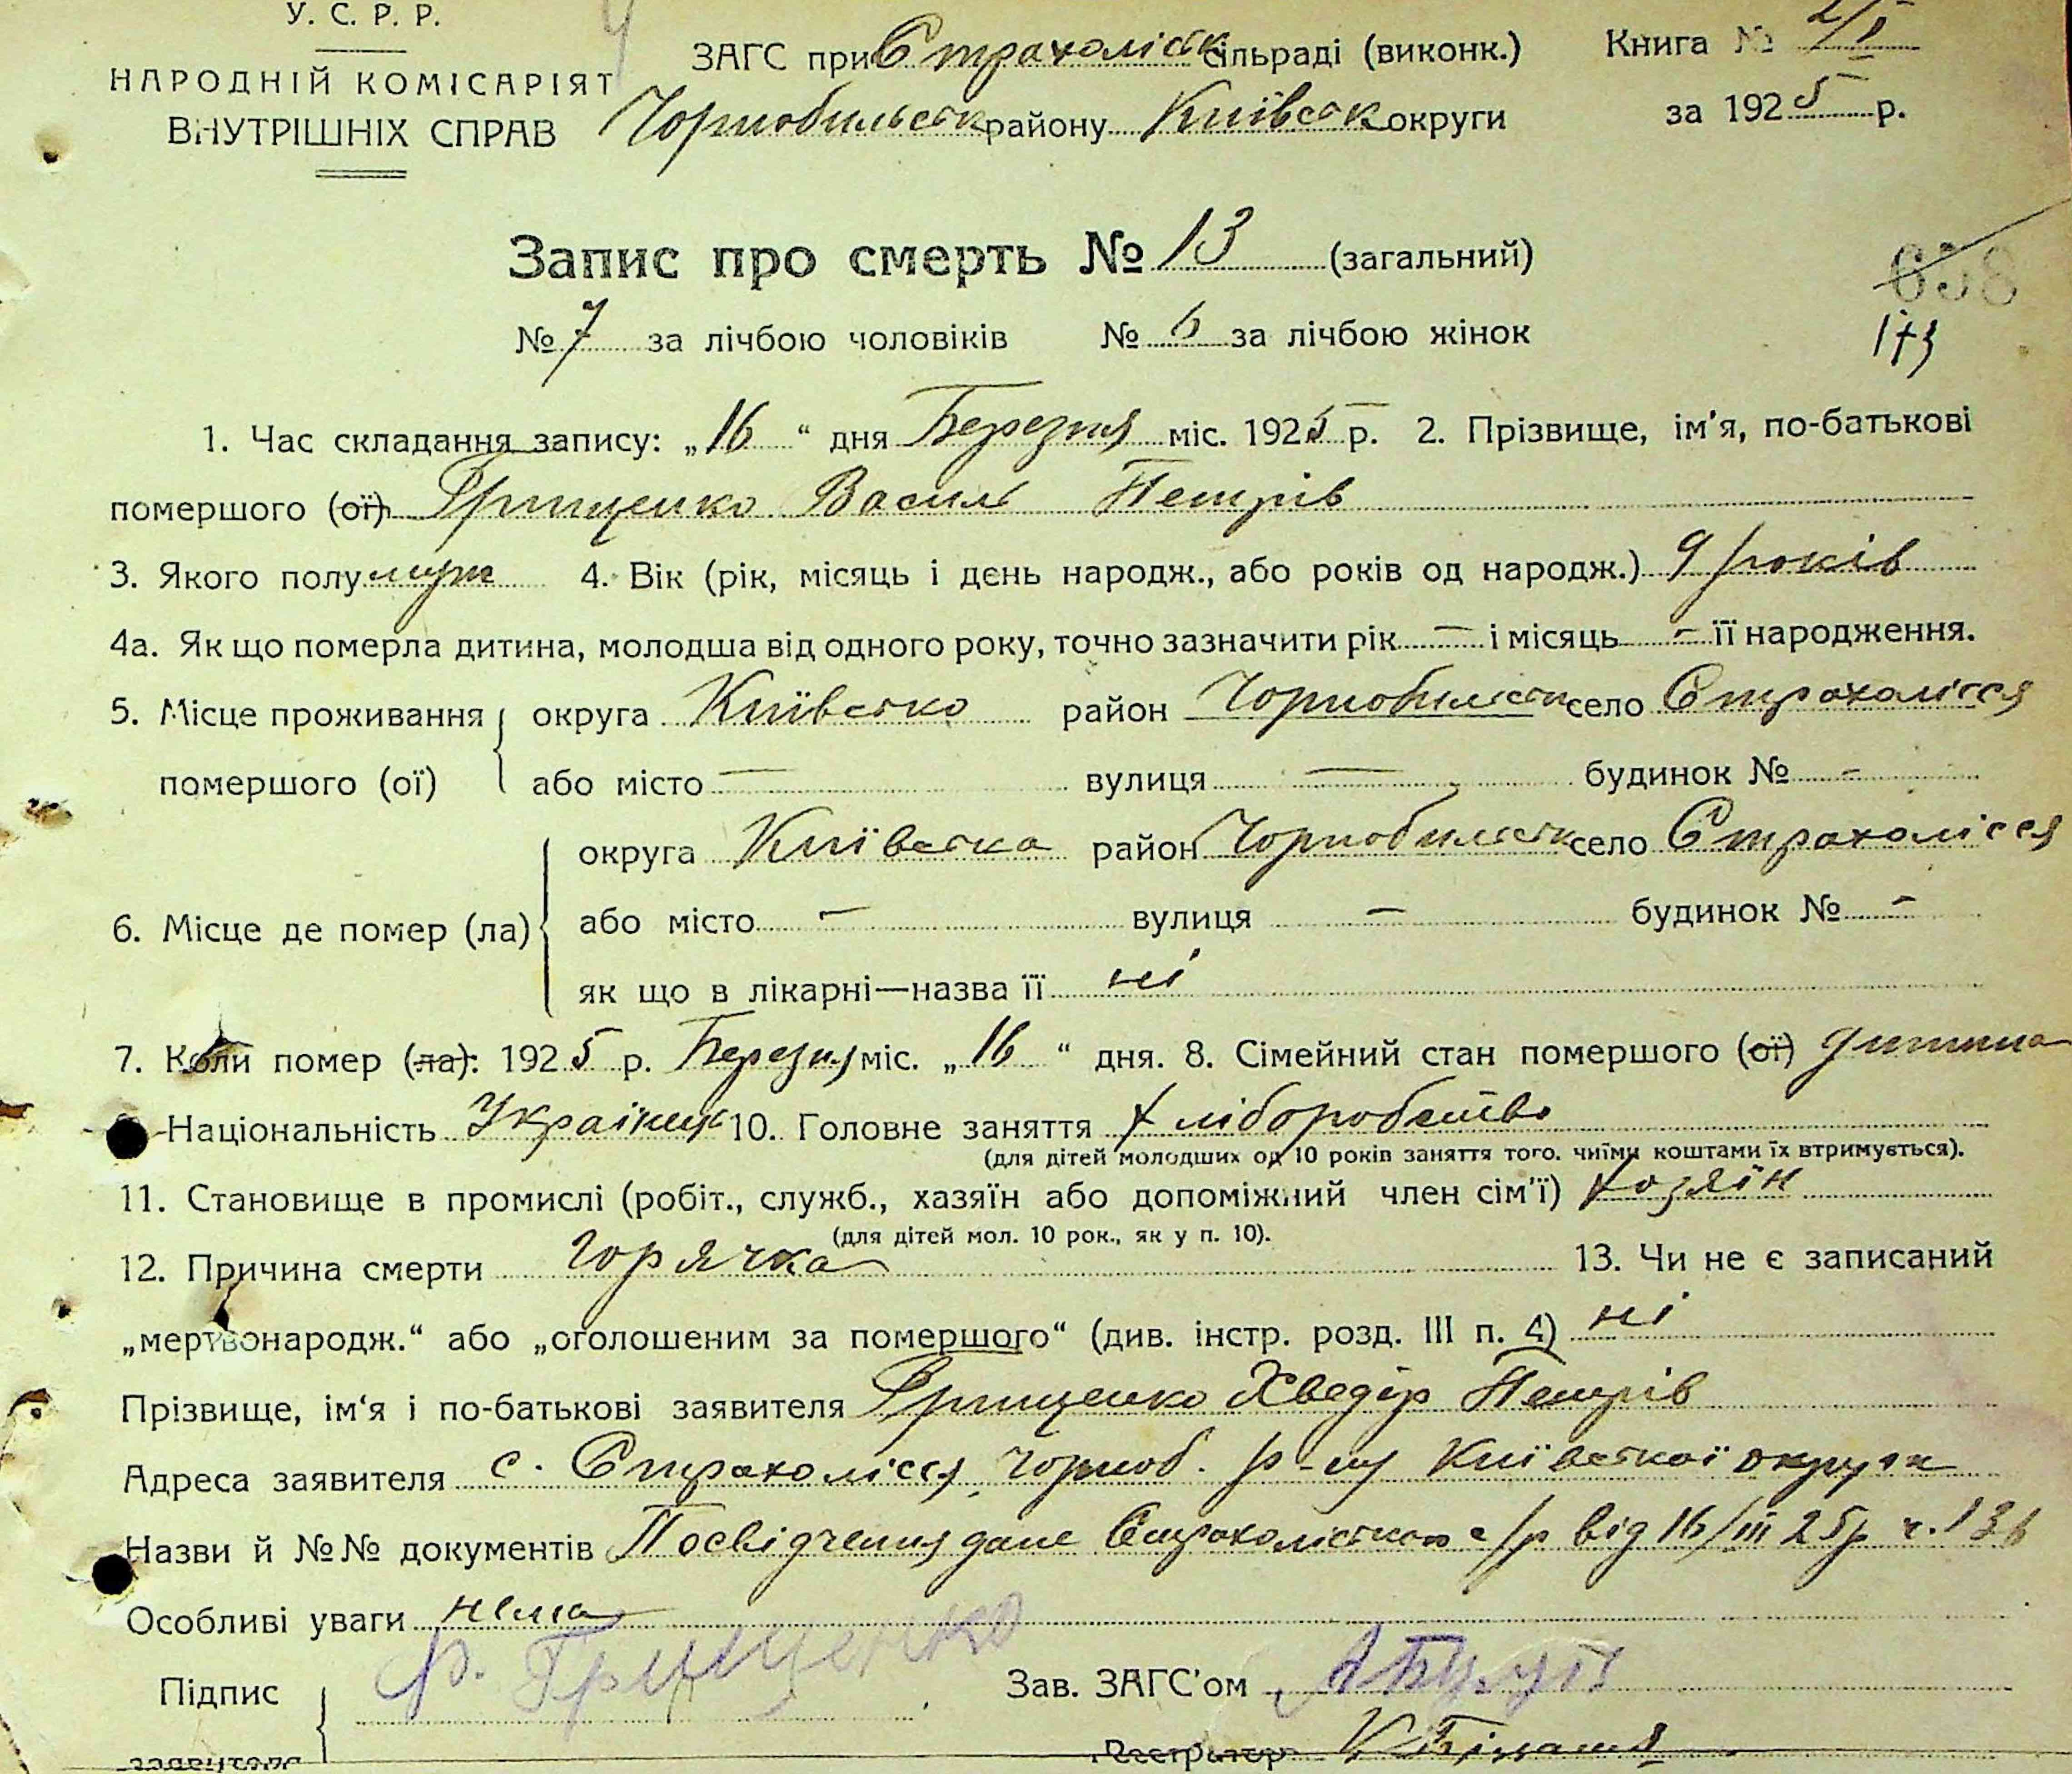 У. С. Р. Р.
НАРОДНІЙ КОМІСАРІЯТ
ВНУТРІШНІХ СПРАВ
ЗАГС при Страхоліськ сільраді (виконк.)
Чорнобильськ району Київськ округи
Книга № 2/I
за 1925 р.
Запис про смерть № 13 (загальний)
658
173
№ 7 за лічбою чоловіків № 6 за лічбою жінок
1. Час складання запису: „16“ дня Березня міс. 1925 р. 2. Прізвище, ім'я, по-батькові
помершого (ої) Грищенко Василь Петрів
3. Якого полу муж 4. Вік (рік, місяць і день народж., або років од народж.) 9 років
4а. Як що померла дитина, молодша від одного року, точно зазначити рік — і місяць — її народження.
5. Місце проживання округа Київсько район Чорнобильськ село Страхолісся
помершого (ої) або місто — вулиця — будинок № -
округа Київська район Чорнобильськ село Страхолісся
6. Місце де помер (ла) або місто — вулиця — будинок № -
як що в лікарні—назва її ні
7. Коли помер (ла): 1925 р. Березня міс. „16“ дня. 8. Сімейний стан помершого (ої) дитина
Національність Українець 10. Головне заняття хліборобство
(для дітей молодших од 10 років заняття того, чиїми коштами їх втримується).
11. Становище в промислі (робіт., служб., хазяїн або допоміжний член сім'ї) хозяїн
(для дітей мол. 10 рок., як у п. 10).
12. Причина смерти горячка 13. Чи не є записаний
„мертвонародж.“ або „оголошеним за помершого“ (див. інстр. розд. III п. 4) ні
Прізвище, ім'я і по-батькові заявителя Грищенко Хведір Петрів
Адреса заявителя с. Страхолісся, Чорноб. р-ну Київської округи
Назви й №№ документів Посвідчення дане Страхоліською с/р від 16/III 25р ч. 136
Особливі уваги нема
Підпис заявителя Ф. Грищенко Зав. ЗАГС'ом
Реєстратор